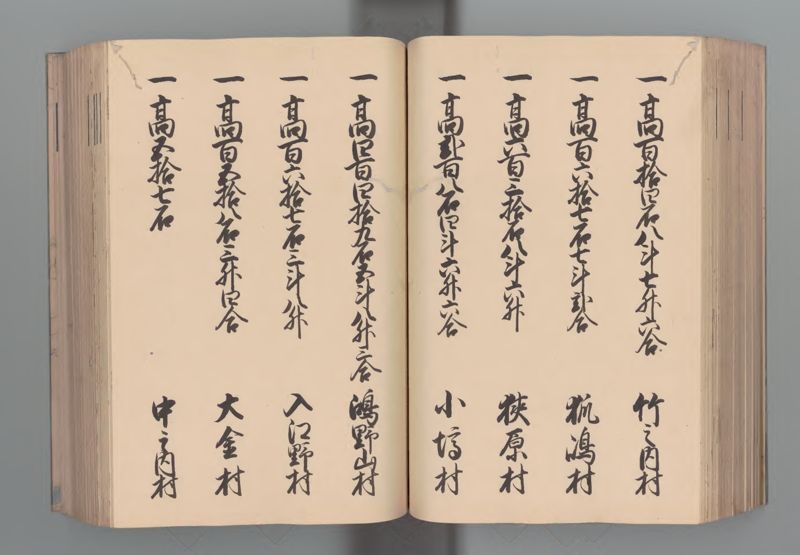 一高百拾四石八斗七升六合 竹之内村
一高百六拾七石七斗弐合 狐塙村
一高六百三拾石八斗六升 狭原村
一高弐百八石四斗六升六合 小塙村
一高四百四拾九石五斗八升三合 鴻野山村
一高百六拾七石三斗八升 入江野村
一高百五拾八石三升四合 大金村
一高五拾七石 中之内村